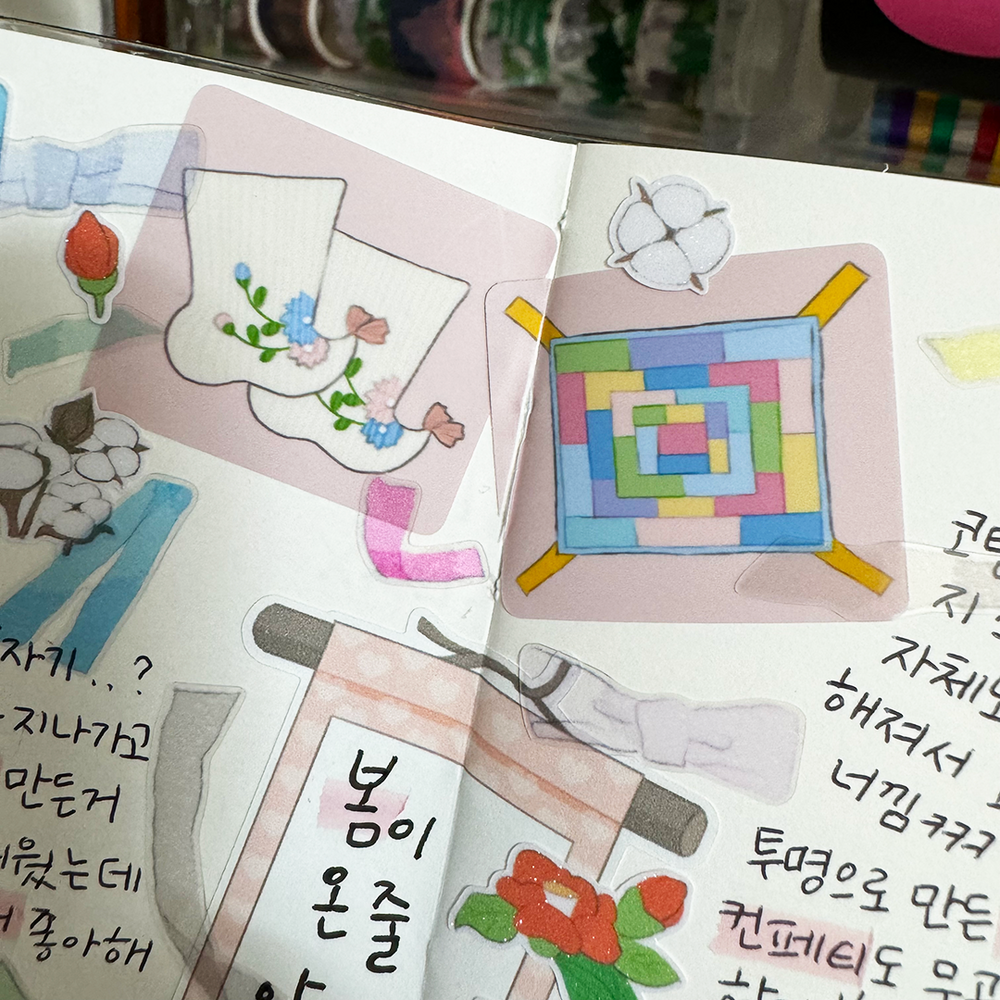 자기..?
지나가고
만든거
웠는데
좋아해
봄이
온 줄
코팅
지
자체
해져서
너낌 ㅋㅋㅋ
투명으로 만든
컨페티도